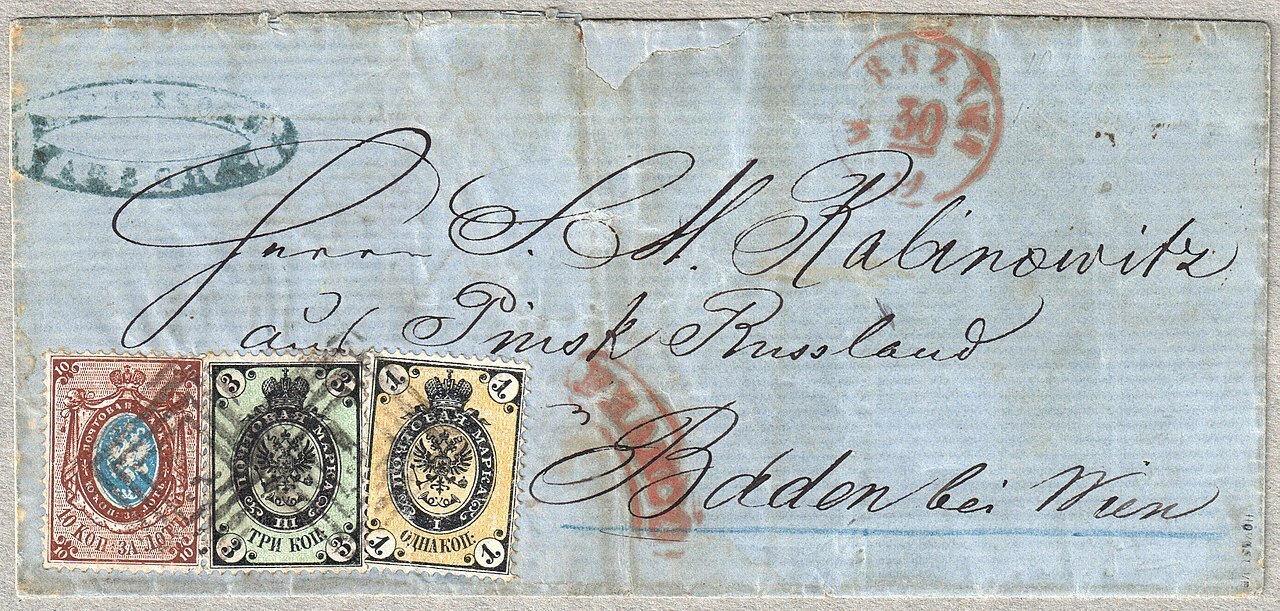 WARSZAWA
30
Herrn S. M. Rabinowitz
aus Pinsk Russland
Baden bei Wien
10 10
ПОЧТОВАЯ МАРКА
10 КОП. ЗА ЛОТЪ
10 10
3 3
ПОЧТОВАЯ МАРКА
III
ТРИ КОП.
3 3
1 1
ПОЧТОВАЯ МАРКА
I
ОДНА КОП:
1 1